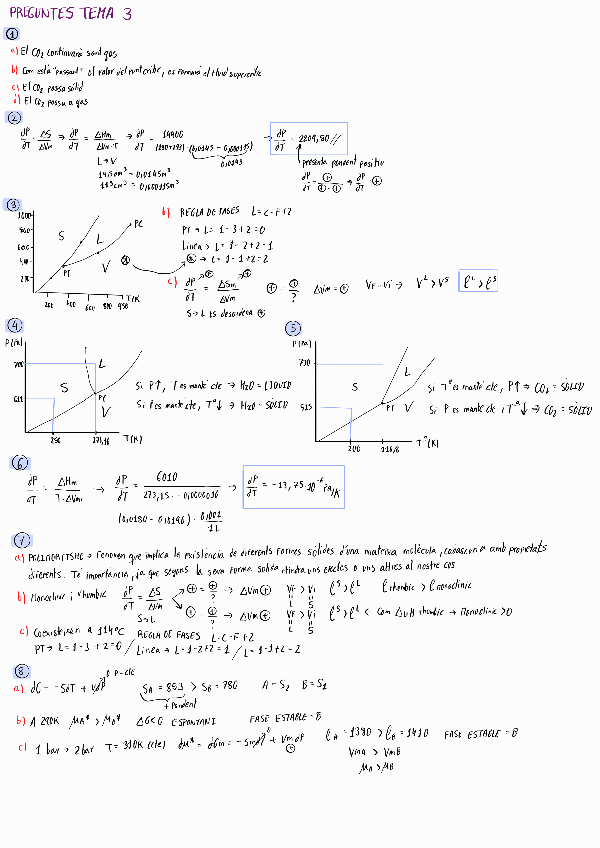 PREGUNTES TEMA 3
①
a) El CO₂ continuarà sent gas
b) Com està "passant" el valor del punt crític, es formarà el fluid supercrític
c) El CO₂ passa sòlid
d) El CO₂ passa a gas
②
dP/dT = ΔS/ΔVm → dP/dT = ΔHm/ΔVm·T → dP/dT = 14400/(180+293)·(0,0145 - 0,000115) → dP/dT = 2204,80 //
0,0143
L → V
14,5 dm³ = 0,0145 m³
115 cm³ = 0,000115 m³
presenta pendent positiu
dP/dT = ⊕/⊕·⊕ → dP/dT ⊕
③
1000 800 600 400 200
S L V PT PC
200 400 600 800 T/K
b) REGLA DE FASES L = C - F + 2
PT → L = 1 - 3 + 2 = 0
Línea → L = 1 - 2 + 2 = 1
⊗ → L = 1 - 1 + 2 = 2
c) dP/dT = ΔSm/ΔVm ⊕ = ⊕/? ΔVm = ⊕ Vf - Vi → V^L > V^S ρ^L > ρ^S
S → L és desordena ⊕
④
P(Pa) 700 611 S L V PC 250 273,16 T(K)
Si P↑, T es manté cte → H₂O = LÍQUID
Si P es manté cte, Tª↓ → H₂O = SÒLID
⑤
P(Pa) 700 515 S L V PT 200 216,8 Tª(K)
Si Tª es manté cte, P↑ → CO₂ = SÒLID
Si P es manté cte, Tª↓ → CO₂ = SÒLID
⑥
dP/dT = ΔHm/T·ΔVm → dP/dT = 6010/273,15 · -0,0000016 → dP/dT = -13,75·10⁻⁶ Pa/K
(0,0180 - 0,0196) · 0,001/1L
⑦
a) POLIMORFISME → Fenomen que implica la existència de diferents formes sòlides d'una mateixa molècula, cadascuna amb propietats
diferents. Té importància, ja que segons la seva forma sòlida tindrà uns efectes o uns altres al nostre cos
b) Monoclínic i rhombic dP/dT = ΔS/ΔVm ⊕ = ⊕/? → ΔVm ⊕ Vf > Vi ρ^S > ρ^L ρ rhombic > ρ monoclinic
S → L ⊕ = ⊕/? → ΔVm ⊕ Vf > Vi L S ρ^S > ρ^L < com ΔtrH rhombic → Monoclinic > 0
c) Coexistiran a 114ºC / REGLA DE FASES L = C - F + 2
PT → L = 1 - 3 + 2 = 0 / Línea → L = 1 - 2 + 2 = 1 / L = 1 - 1 + 2 = 2
⑧
a) dG = -SdT + VdP⁰ P = cte SA = 853 > SB = 780 A = S₂ B = S₁
+ pendent
b) A 290K μA* > μB* ΔG < 0 ESPONTANI FASE ESTABLE = B
c) 1 bar → 2 bar T = 310K (cte) dμ* = dGm = -SmdT⁰ + VmdP ⊕ ρA = 1380 > ρB = 1410 FASE ESTABLE = B
VmA > VmB
μA > μB